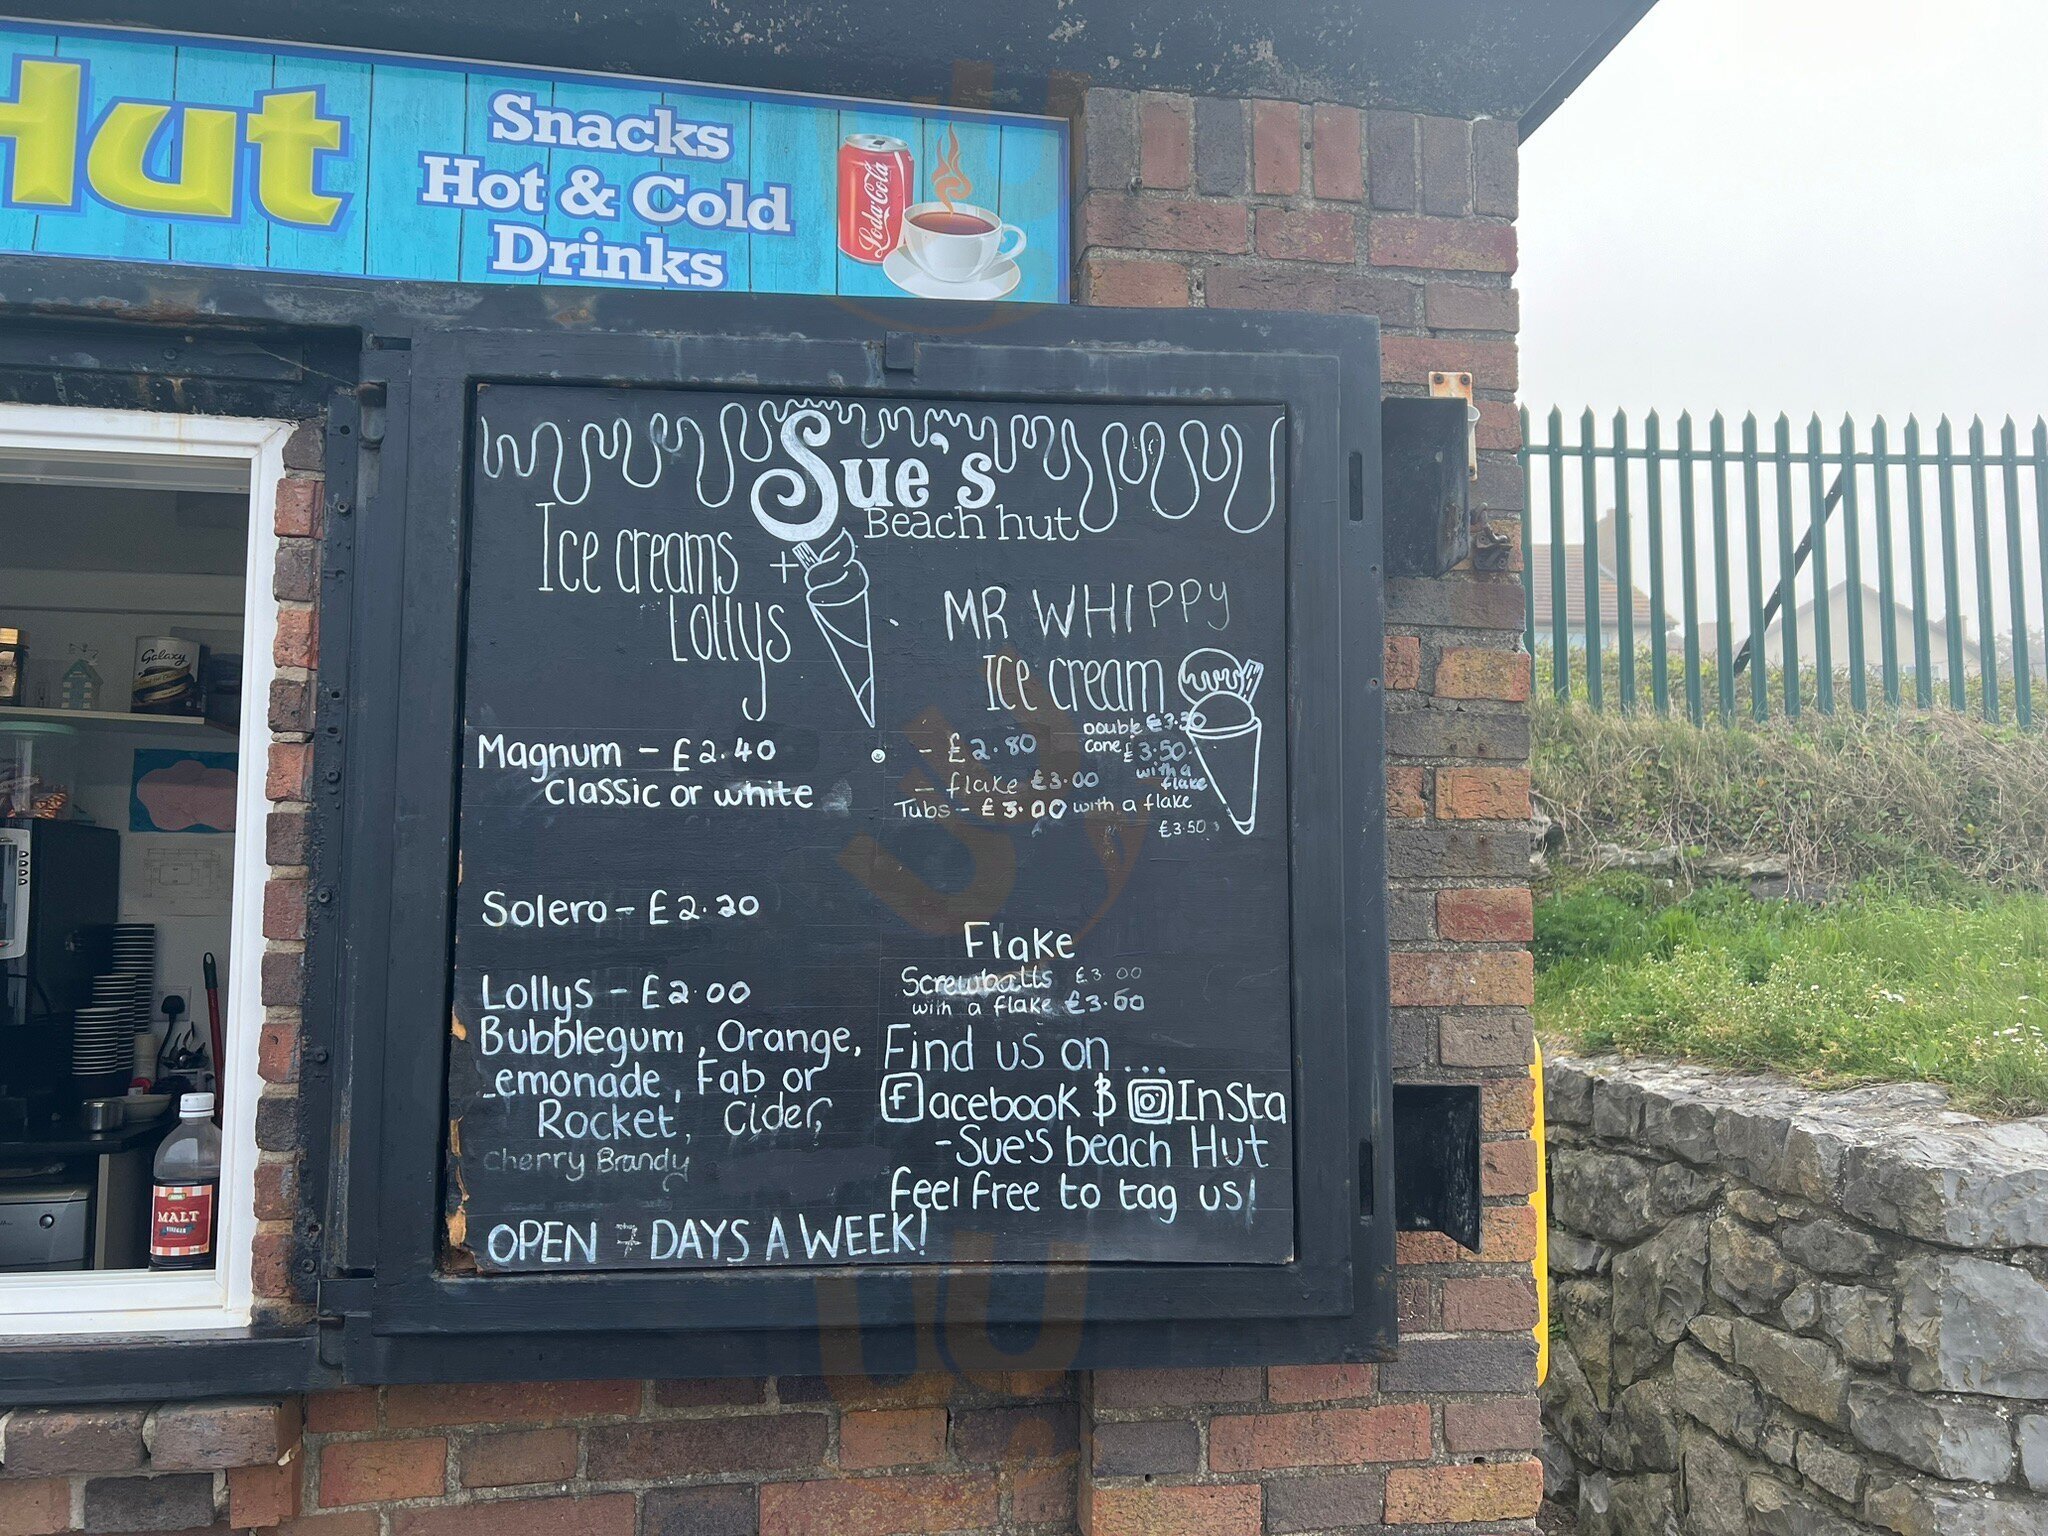 Hut
Snacks
Hot & Cold
Drinks
Loda Cola
Galaxy
MALT
Sue's
Beach hut
Ice creams +
Lollys
Magnum - £2.40
classic or white
Solero - £2.20
Lollys - £2.00
Bubblegum, Orange,
Lemonade, Fab or
Rocket, Cider,
Cherry Brandy
OPEN 7 DAYS A WEEK!
MR WHIPPY
Ice cream
- £2.80
- flake £3.00
Double £3.30
cone £3.50
with a
flake
Tubs - £3.00 with a flake
£3.50
Flake
Screwballs £3.00
with a flake £3.60
Find us on...
facebook & Insta
- Sue's beach Hut
feel free to tag us!